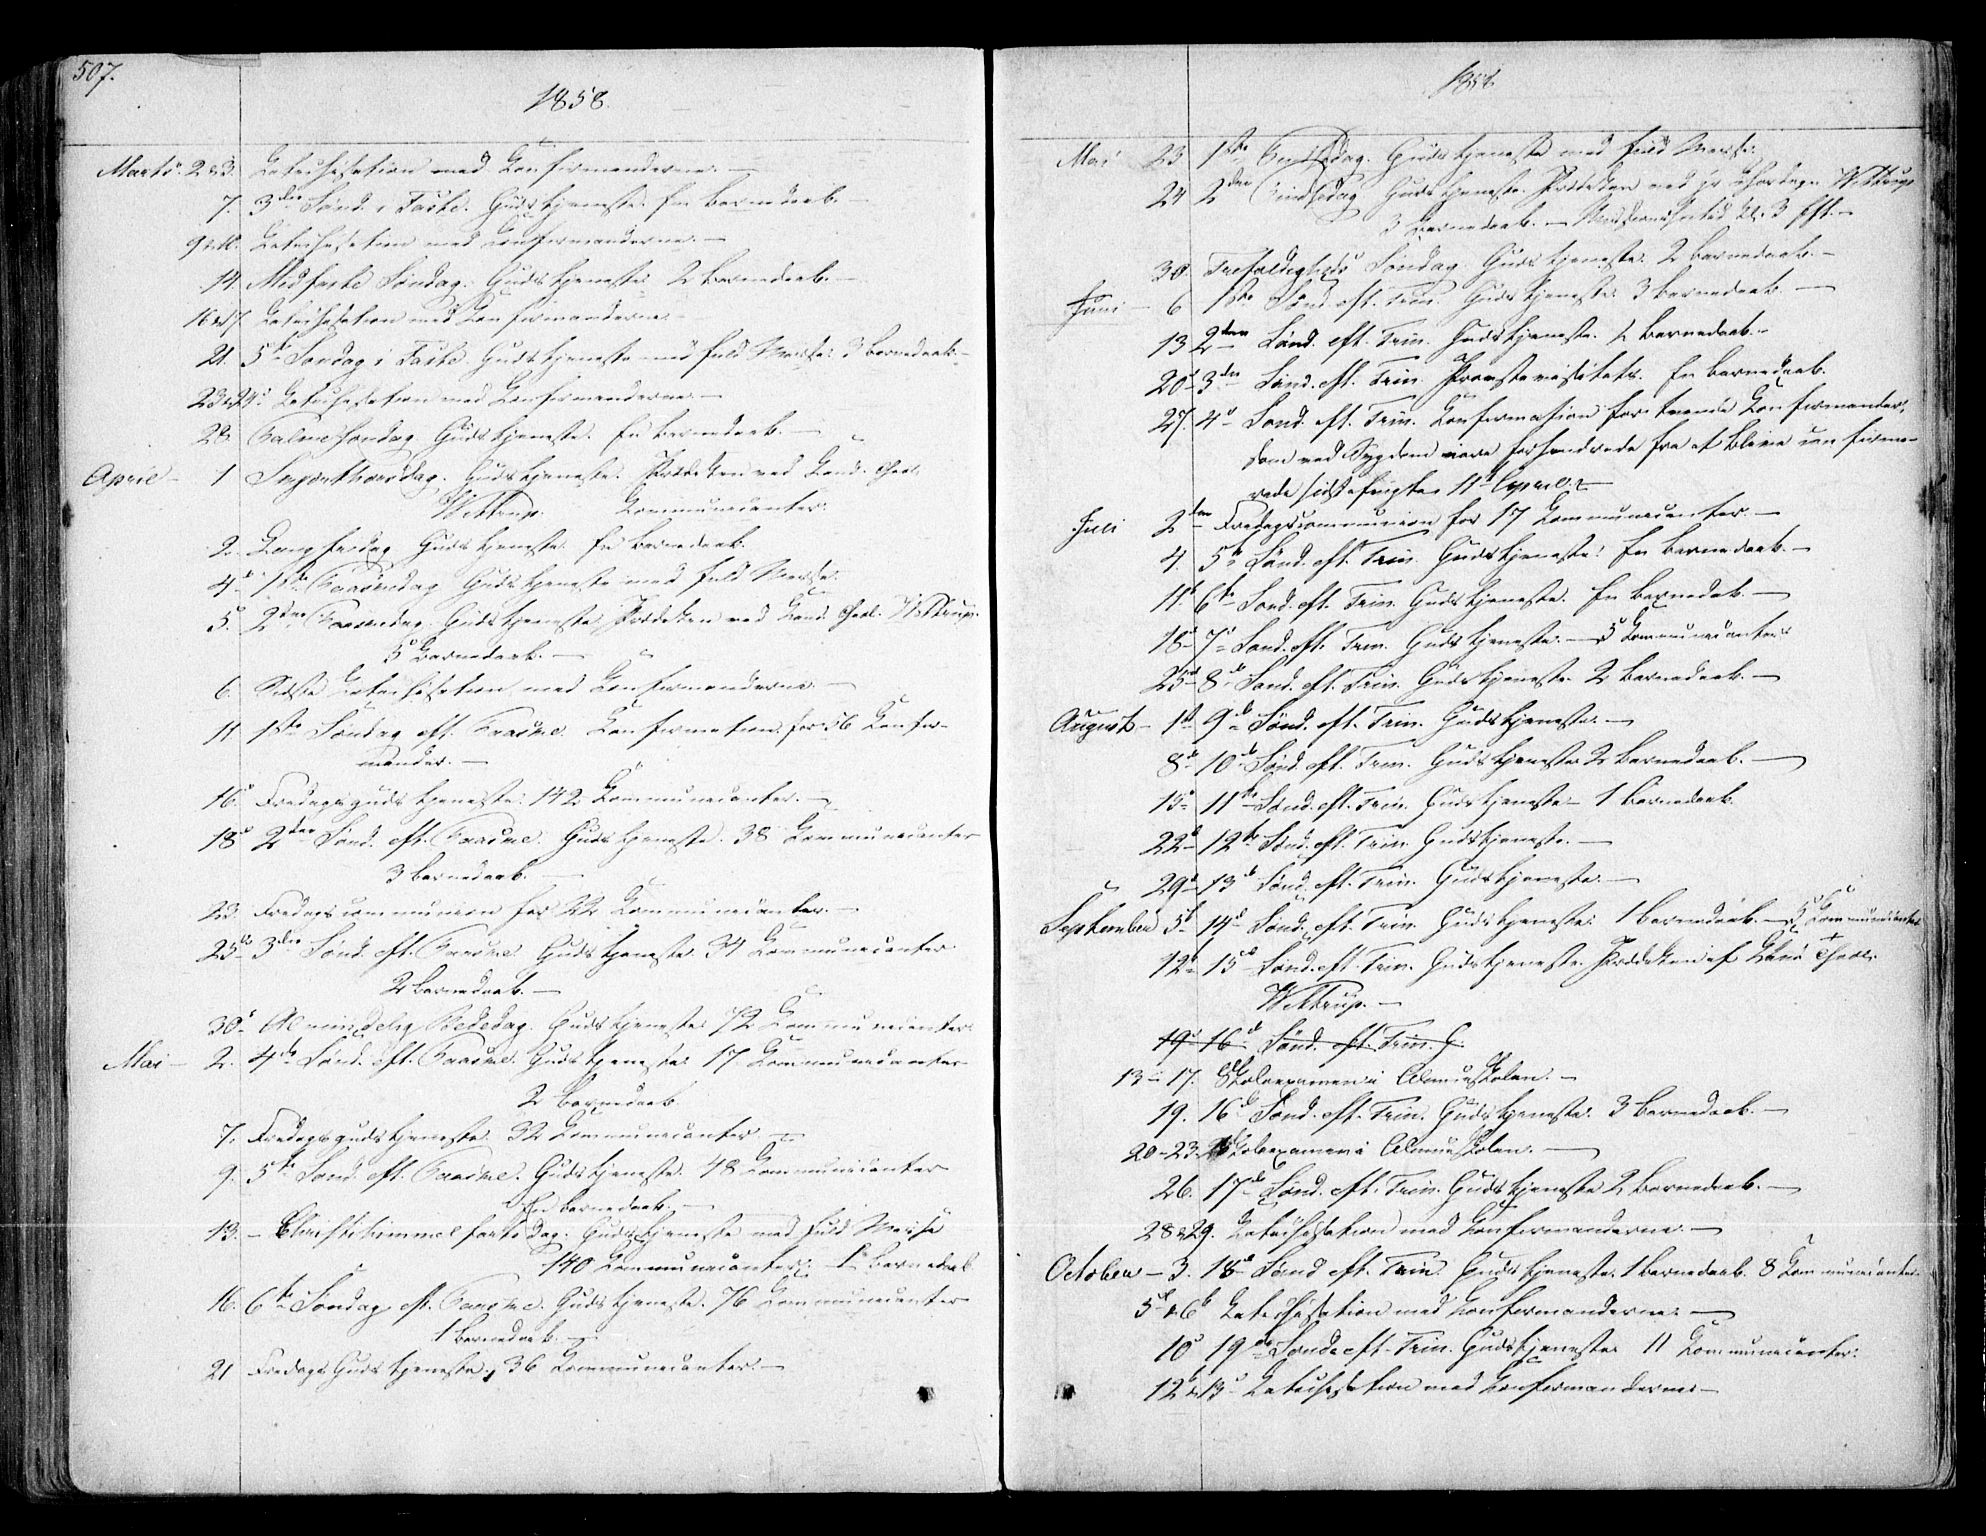 507.
1858.
Marts 2&3. Catechisation med Confirmanderne. —
7. 3die Sønd. i Faste. Gudstjeneste. En Barnedaab. —
9&10. Catechisation med Confirmanderne. —
14. Midfaste Søndag. Gudstjeneste 2 Barnedaab. —
16&17. Catechisation med Confirmanderne. —
21. 5te Søndag i Faste Gudstjeneste med fuld Messe. 3 Barnedaab. —
23&24. Catechisation med Confirmanderne. —
28. Palmesøndag. Gudstjeneste. En Barnedaab. —
April — 1 Skjærthorsdag. Gudstjeneste. Prædiken ved Cand. theol.
Wittrup. Communicanter.
2. Langfredag Gudstjeneste. En Barnedaab.
4de 1ste Paaskedag Gudstjeneste med fuld Messe.
5. 2den Paaskedag. Gudstjeneste. Prædiken ved Cand. theol. Wittrup.
5 Barnedaab. —
6. Sidste Catechisation med Confirmanderne —
11 1ste Søndag eft. Paaske. Confirmation for 56 Confir-
mander. —
16. Fredagsgudstjeneste. 142 Communicanter. —
18 2den Sønd. eft. Paaske. Gudstjeneste. 38 Communicanter
3 Barnedaab. —
23. Fredagscommunion for 22 Communicanter. —
25de 3die Sønd. eft. Paaske. Gudstjeneste 34 Communicanter
2 Barnedaab. —
30. Almindelig Bededag. Gudstjeneste 72 Communicanter.
Mai — 2. 4de Sønd. eft. Paaske. Gudstjeneste 17 Communicanter
2 Barnedaab.
7. Fredagsgudstjeneste. 32 Communicanter —
9. 5te Sønd. eft. Paaske. Gudstjeneste. 48 Communicanter
En Barnedaab. —
13. — Christi Himmelfartsdag. Gudstjeneste med fuld Messe
140 Communicanter. 1 Barnedaab
16. 6te Søndag eft. Paaske. Gudstjeneste. 76 Communicanter
1 Barnedaab. —
21 Fredags Gudstjeneste, 36 Communicanter. —
1858.
Mai 23 1ste Pindsedag. Gudstjeneste med fuld Messe.
24 2den Pindsedag Gudstjeneste. Prædiken ved Wittrup
3 Barnedaab. — Kl. 3 Eft. —
30. Trefoldigheds Søndag Gudstjeneste. 2 Barnedaab. —
Juni — 6 1ste Sønd. eft. Trin. Gudstjeneste. 3 Barnedaab —
13 2den Sønd. eft. Trin. Gudstjeneste. 2 Barnedaab. —
20 3die Sønd. eft. Trin Provstevisitats. En Barnedaab.
27. 4de Sønd. eft. Trin. Confirmation for tvende Confirmander,
som ved Sygdom vare forhindrede fra at blive confirme-
rede 11te April. —
Juli 2den Fredagscommunion for 17 Communicanter. —
4. 5te Sønd. eft. Trin. Gudstjeneste. En Barnedaab. —
11te 6te Sønd. eft. Trin. Gudstjeneste. En Barnedaab. —
18 7de Sønd. eft. Trin. Gudstjeneste. — 5 Communicanter
25de 8de Sønd. eft. Trin. Gudstjeneste 2 Barnedaab. —
August — 1ste 9de Sønd. eft. Trin. Gudstjeneste. —
8de 10de Sønd. eft. Trin. Gudstjeneste 2 Barnedaab. —
15de 11te Sønd. eft. Trin. Gudstjeneste — 1 Barnedaab.
22de 12te Sønd. eft. Trin. Gudstjeneste. —
29de 13de Sønd. eft. Trin. Gudstjeneste. —
September 5te 14de Sønd. eft. Trin. Gudstjeneste. 1 Barnedaab. — 5 Communicanter
12te 15de Sønd. eft. Trin. Gudstjeneste. Prædiken af Cand. theol.
Wittrup. —
19de 16de Sønd. eft. Trin. G.
13 — 17. Skoleexamen i Almueskolen. —
19. 16de Sønd. eft. Trin. Gudstjeneste. 3 Barnedaab. —
20 — 23. Skoleexamen i Almueskolen. —
26. 17de Sønd. eft. Trin. Gudstjeneste 2 Barnedaab. —
28&29. Catechisation med Confirmanderne. —
October — 3. 18de Sønd eft. Trin. Gudstjeneste. 1 Barnedaab. 8 Communicanter.
5te & 6te Catechisation med Confirmanderne. —
10 19de Sønd. eft. Trin. Gudstjeneste 11 Communicanter.
12te & 13 Catechisation med Confirmanderne —